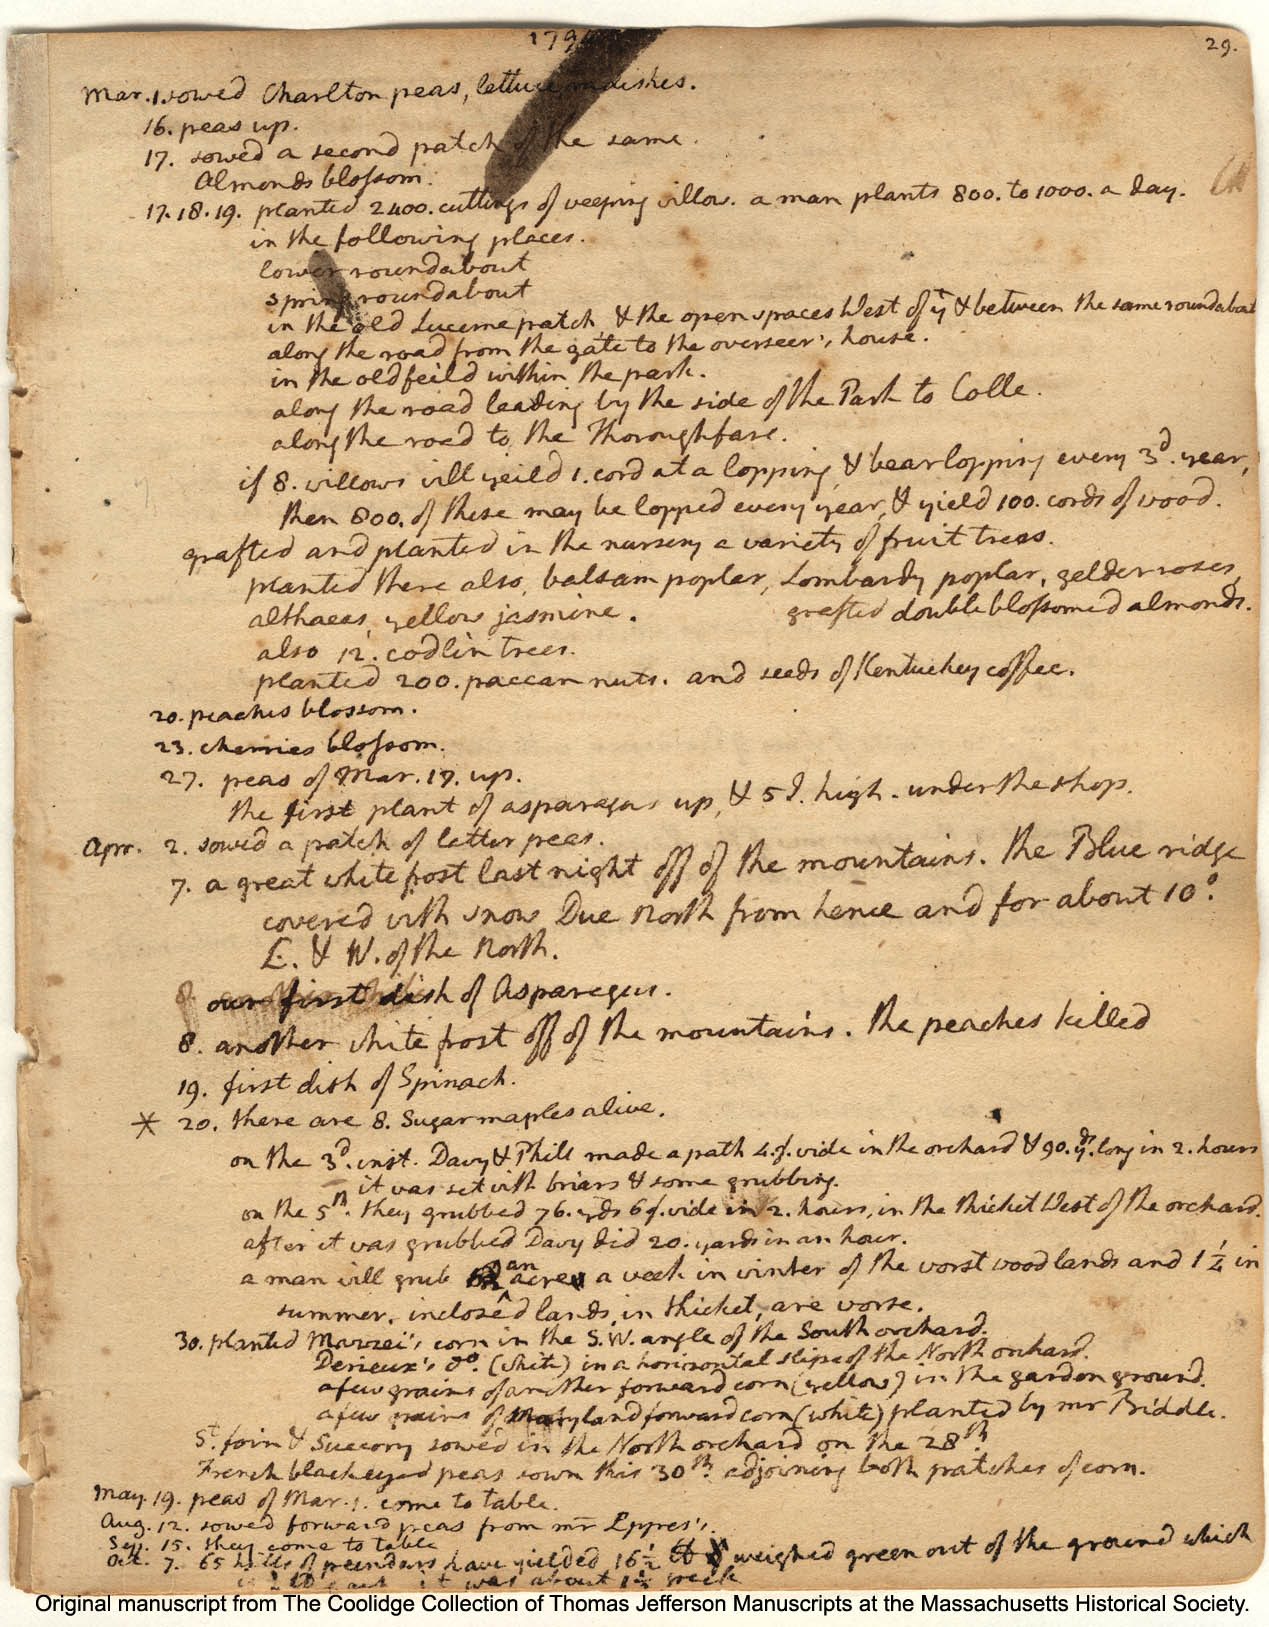 29.
Mar. 1. sowed Charlton peas, lettuce, radishes.
16. peas up.
17. sowed a second patch of the same.
Almonds blossom.
17. 18. 19. planted 2400. cuttings of weeping willow. a man plants 800. to 1000. a day.
in the following places.
lower roundabout
spring roundabout
in the old Lucerne patch & the open spaces West of yt & between the same roundabout
along the road from the gate to the overseer's house.
in the old feild within the park.
along the road leading by the side of the Park to Colle.
along the road to the Thoroughfare.
if 8. willows will yeild 1. cord at a lopping & bear lopping every 3d. year,
then 800. of these may be lopped every year, & yield 100. cords of wood.
grafted and planted in the nursery a variety of fruit trees.
planted there also, balsam poplar, Lombardy poplar, gelder roses,
althaeas, yellow jasmine. grafted double blossomed almonds.
also 12. codlin trees.
planted 200. paccan nuts. and seeds of Kentuckey coffee.
20. peaches blossom.
23. cherries blossom.
27. peas of Mar. 17. up.
the first plant of asparagus up, & 5 I. high. under the shop.
Apr. 2. sowed a patch of letter peas.
7. a great white frost last night off of the mountains. the Blue ridge
covered with snow Due North from hence and for about 10°.
E. & W. of the North.
our first dish of Asparagus.
8. another white frost off of the mountains. the peaches killed
19. first dish of Spinach.
* 20. there are 8. Sugar maples alive.
on the 3d. inst. Davy & Phill made a path 4. f. wide in the orchard & 90. yds. long in 2. hours
it was set with briars & some grubbing.
on the 5th. they grubbed 76. yds 6 f. wide in 2. hours, in the thicket West of the orchard.
after it was grubbed Davy did 20. yards in an hour.
a man will grub an acre a week in winter of the worst woodlands and 1 1/4 in
summer. inclosed lands, in thicket, are worse.
30. planted Mazzei's corn in the S.W. angle of the South orchard.
Derieux's do. (white) in a horizontal slipe of the North orchard.
a few grains of another forward corn (yellow) in the garden ground.
a few grains of Maryland forward corn (white) planted by mr Biddle.
St. foin & Succory sowed in the North orchard on the 28th.
French black eyed peas sown this 30th. adjoining both patches of corn.
May. 19. peas of Mar. 1. come to table.
Aug. 12. sowed forward peas from mr Eppes's.
Sep. 15. they come to table
Oct. 7. 65 hills of peendars have yielded 16 1/2 ℔ weighed green out of the ground which
is it was about 1 1/2 peck
Original manuscript from The Coolidge Collection of Thomas Jefferson Manuscripts at the Massachusetts Historical Society.